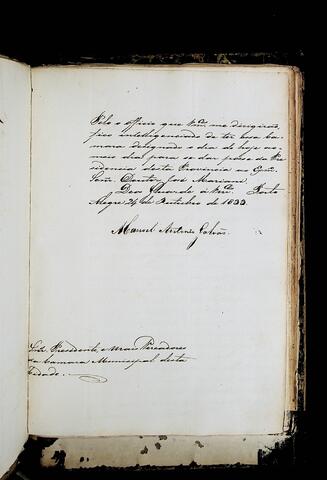 Pelo o officio que Vmces. me dirigirão,
fico intelligenciado de ter essa Ca-
mara designado o dia de hoje ao
meio dia para se dar posse da Pre-
sidencia desta Provincia ao Exmo.
Senr. Doutor José Mariani.
Deos Guarde a Vmces. Porto
Alegre 24 de Outubro de 1833.
Manoel Antonio Galvão.
Snrs. Presidente, e mais Vereadores
da Camara Municipal desta
Cidade.